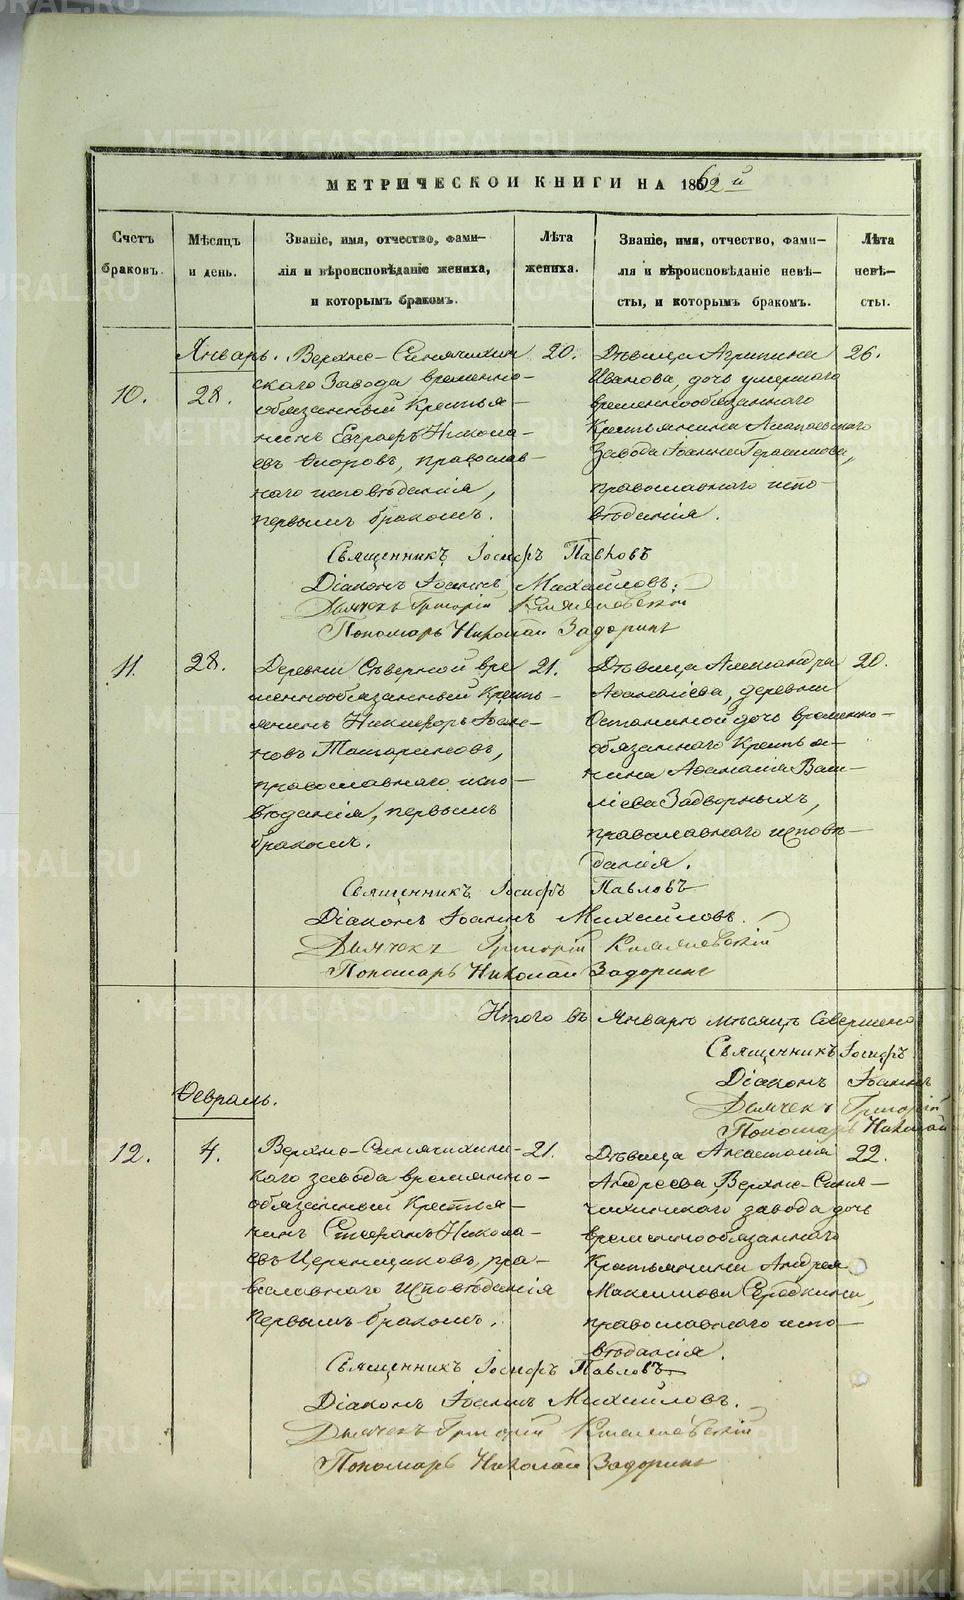 МЕТРИЧЕСКОЙ КНИГИ НА 1862й
Счетъ браковъ.
Мѣсяцъ и день.
Званіе, имя, отчество, фами-
лія и вѣроисповѣданіе жениха,
и которымъ бракомъ.
Лѣта жениха.
Званіе, имя, отчество, фами-
лія и вѣроисповѣданіе невѣ-
сты, и которымъ бракомъ.
Лѣта невѣ-
сты.
Январь.
10.
28.
Верхне-Синячихин
скаго Завода временно-
обязанный Крестья-
нинъ Евграфъ Никола-
евъ Ѳлоровъ, православ-
наго исповѣданія,
первымъ бракомъ.
20.
Дѣвица Агрипина
Иванова, дочь умершаго
временнообязаннаго
Крестьянина Алапаевскаго
Завода Іоанна Герасимова,
православнаго испо-
вѣданія.
26.
Священникъ Іосифъ Павловъ
Діаконъ Іоаннъ Михайловъ.
Дьячекъ Григорій
Пономарь Николай Задоринъ
11.
28.
Деревни Сѣверной вре
меннообязанный Кресть-
янинъ Никифоръ Іоан-
новъ Татариновъ,
православнаго испо-
вѣданія, первымъ
бракомъ.
21.
Дѣвица Александра
Аѳанасіева, деревни
Останиной дочь временно-
обязаннаго Крестья-
нина Аѳанасія Васи-
ліева Задворныхъ,
православнаго исповѣ-
данія.
20.
Священникъ Іосифъ Павловъ
Діаконъ Іоаннъ Михайловъ.
Дьячекъ Григорій
Пономарь Николай Задоринъ
Итого въ Январѣ мѣсяцѣ совершено
Священникъ Іосифъ
Діаконъ Іоаннъ
Дьячекъ Григорій
Пономарь Николай
Февраль.
12.
4.
Верхне-Синячихин-
скаго завода временно-
обязанный Крестья-
нинъ Стефанъ Никола-
евъ Черемщиковъ, пра-
вославнаго исповѣданія
первымъ бракомъ.
21.
Дѣвица Анастасія
Андреева, Верхне-Синя-
чихинскаго завода дочь
временнообязаннаго
Крестьянина Андрея
Максимова Середкина,
православнаго испо-
вѣданія.
22.
Священникъ Іосифъ Павловъ
Діаконъ Іоаннъ Михайловъ.
Дьячекъ Григорій
Пономарь Николай Задоринъ
METRIKI.GASO-URAL.RU